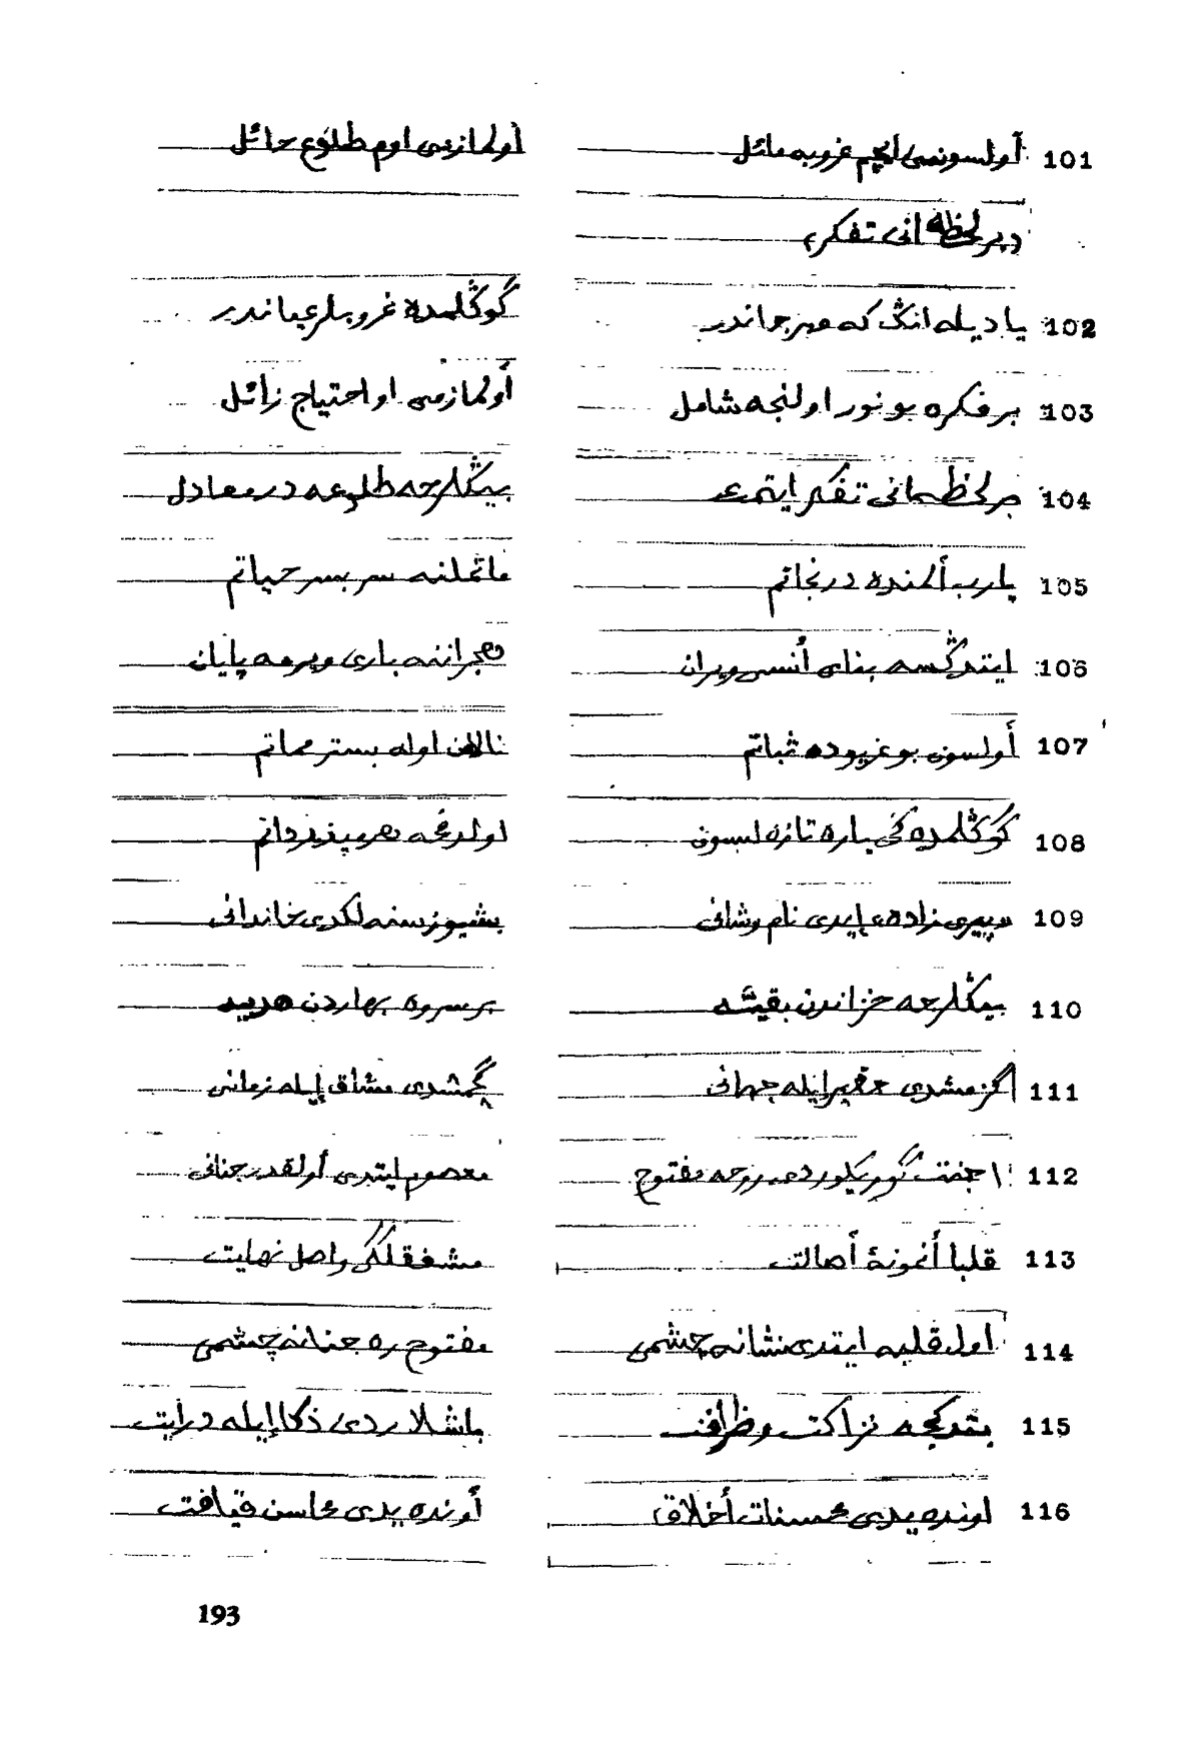 101 أولسونمی ایچم غروبه مائل أولمازمی اوم طلوع حائل
دبر لحظه انی تفکر
102 یادیله انڭ که مهر جاندر گوڭلمده غروبلر عیاندر
103 بر فکره بو نور اولنجه شامل أولمازمی او احتیاج زائل
104 بر لحظه انی تفکر ایتمه بیڭلرجه طلوعه در معادل
105 یارب ألنده در نجاتم ماتملنه سربسر حیاتم
106 ایتدڭسه بنای أنسی ویران هجراننه باری ویرمه پایان
107 أولسون بو غریوده ثباتم نالان اوله بستر مماتم
108 گوڭلمده کی یاره تازه لسون اولدقجه
109 زاده ایدی نام وشانی بشیوز سنه لکدی خاندانی
110 بیڭلرجه خزاندن بقیه بر سروه بهاردن هدیه
111 اگزمشدی حقیر ایله جهانی گچمشدی مشاق إیله زمانی
112 جنت گوریلوردی روحه مفتوح معصوم ایتدی أولقدر جنانی
113 قلبا أنموذۀ أصالت مشفقلگی واصل نهایت
114 اول قلبه ایتدی نشانه چشمی مفتوح ره جنانه چشمی
115 بتدکجه نزاکت وظرافت باشلاردی ذکا إیله درایت
116 اونده یدی محسنات أخلاق أونده یدی محاسن قیافت
193